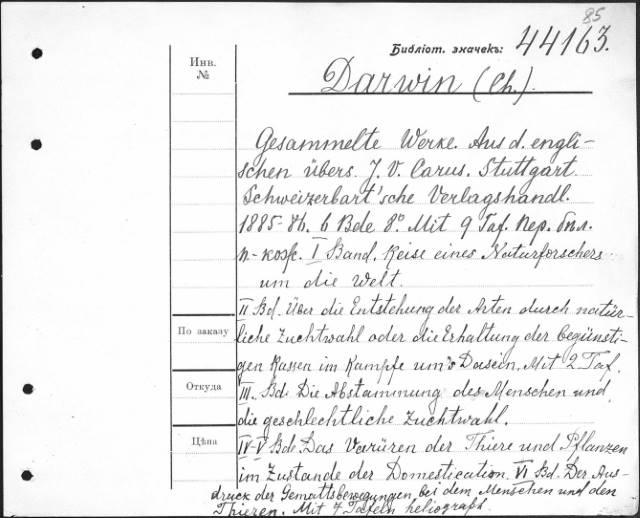 85
Библіот. значекъ: 44163.
Инв.
№
Darwin (Ch.)
Gesammelte Werke. Aus d. engli-
schen übers. J. V. Carus. Stuttgart.
Schweizerbart'sche Verlagshandl.
1885-86. 6 Bde 8°. Mit 9 Taf. Пер. был.
I Band. Reise eines Naturforschers
um die Welt.
II Bd. Über die Entstehung der Arten durch natür-
По заказу
liche Zuchtwahl oder die Erhaltung der begünsti-
gen Rassen im Kampfe um's Dasein. Mit 2 Taf.
Откуда
III. Bd. Die Abstammung des Menschen und
die geschlechtliche Zuchtwahl.
Цѣна
IV-V Bde. Das Variiren der Thiere und Pflanzen
im Zustande der Domestication. VI Bd. Der Aus-
druck der Gemüttsbewegungen bei dem Menschen und den
Thieren. Mit 7 Tafeln heliograph.